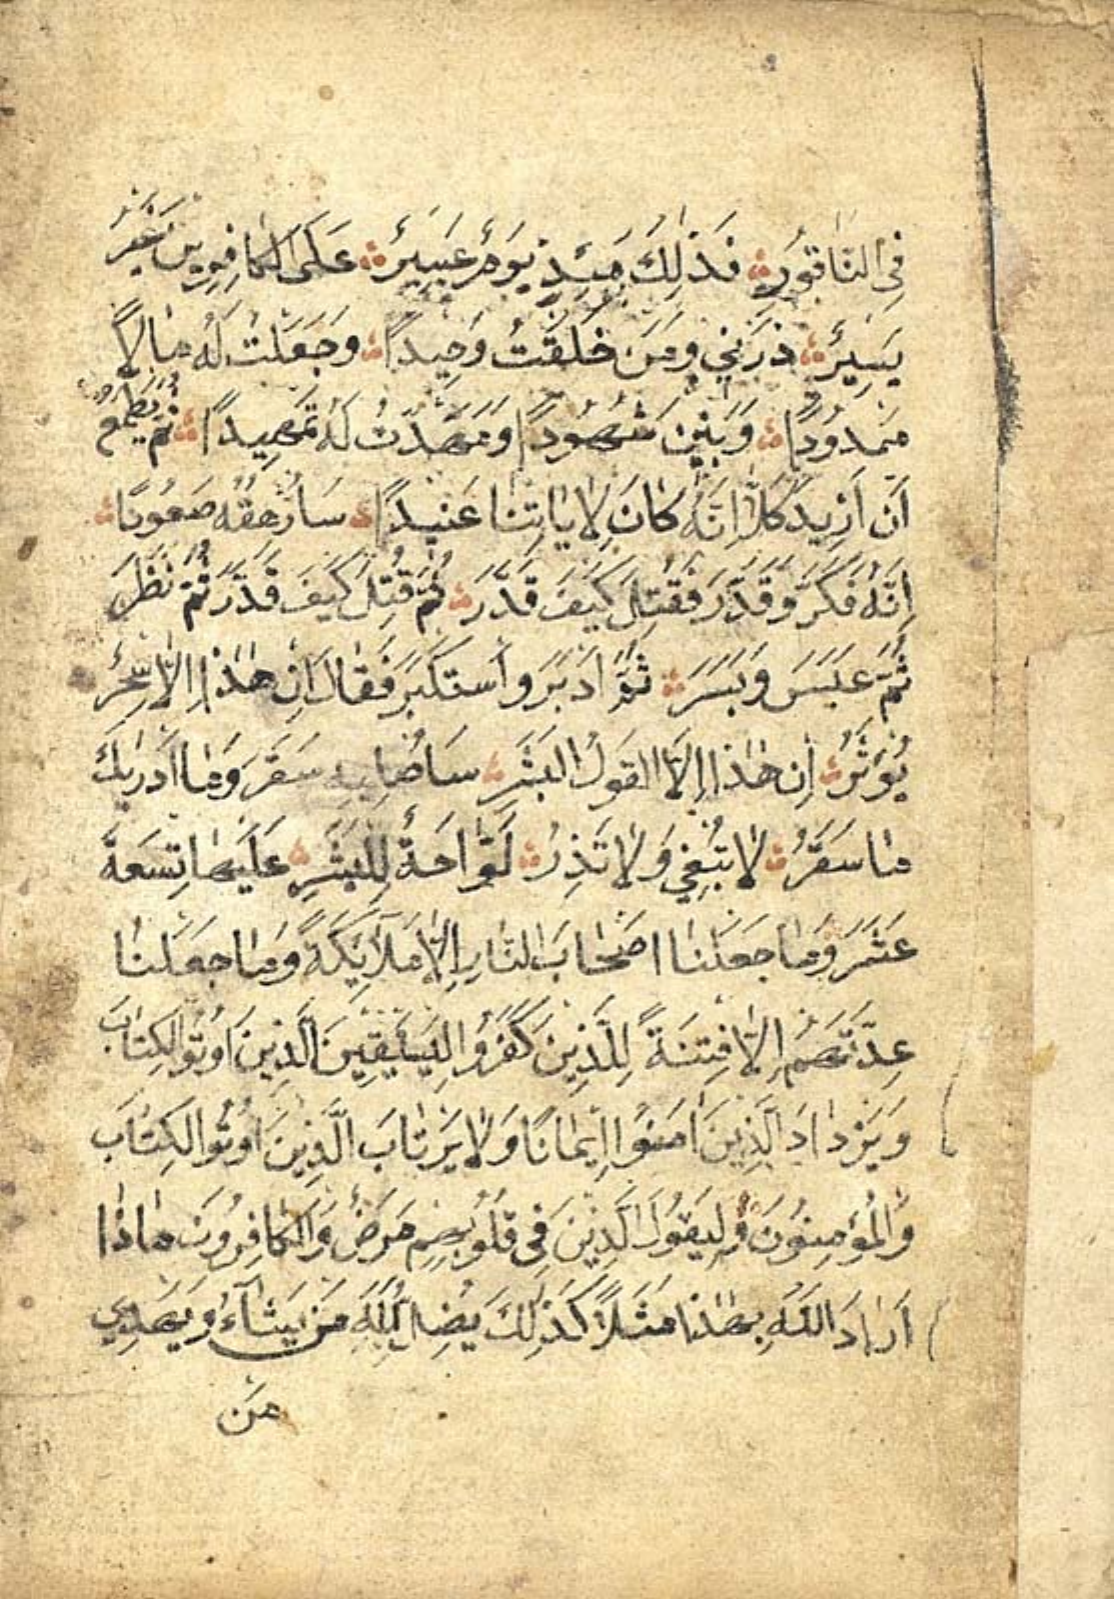 فِي النَّاقُورِ ۞ فَذٰلِكَ يَوْمَئِذٍ يَوْمٌ عَسِيرٌ ۞ عَلَى الْكَافِرِينَ غَيْرُ
يَسِيرٍ ۞ ذَرْنِي وَمَنْ خَلَقْتُ وَحِيدًا ۞ وَجَعَلْتُ لَهُ مَالًا
مَمْدُودًا ۞ وَبَنِينَ شُهُودًا وَمَهَّدْتُ لَهُ تَمْهِيدًا ۞ ثُمَّ يَطْمَعُ
أَنْ أَزِيدَ كَلَّا إِنَّهُ كَانَ لِآيَاتِنَا عَنِيدًا ۞ سَأُرْهِقُهُ صَعُودًا ۞
إِنَّهُ فَكَّرَ وَقَدَّرَ فَقُتِلَ كَيْفَ قَدَّرَ ۞ ثُمَّ قُتِلَ كَيْفَ قَدَّرَ ثُمَّ نَظَرَ
ثُمَّ عَبَسَ وَبَسَرَ ۞ ثُمَّ أَدْبَرَ وَاسْتَكْبَرَ فَقَالَ إِنْ هٰذَا إِلَّا سِحْرٌ
يُؤْثَرُ ۞ إِنْ هٰذَا إِلَّا الْقَوْلُ الْبَشَرِ ۞ سَأُصْلِيهِ سَقَرَ وَمَا أَدْرٰيكَ
مَا سَقَرُ ۞ لَا تُبْقِي وَلَا تَذَرُ ۞ لَوَّاحَةٌ لِلْبَشَرِ ۞ عَلَيْهَا تِسْعَةَ
عَشَرَ وَمَا جَعَلْنَا اَصْحَابَ النَّارِ إِلَّا مَلَآئِكَةً وَمَا جَعَلْنَا
عِدَّتَهُمْ إِلَّا فِتْنَةً لِلَّذِينَ كَفَرُوا لِيَسْتَيْقِنَ الَّذِينَ اُوتُوا الْكِتَابَ
وَيَزْدَادَ الَّذِينَ اٰمَنُوا إِيمَانًا وَلَا يَرْتَابَ الَّذِينَ اُوتُوا الْكِتَابَ
وَالْمُؤْمِنُونَ وَلِيَقُولَ الَّذِينَ فِي قُلُوبِهِمْ مَرَضٌ وَالْكَافِرُونَ مَاذَا
اَرَادَ اللّٰهُ بِهٰذَا مَثَلًا كَذٰلِكَ يُضِلُّ اللّٰهُ مَنْ يَشَآءُ وَيَهْدِي
مَنْ